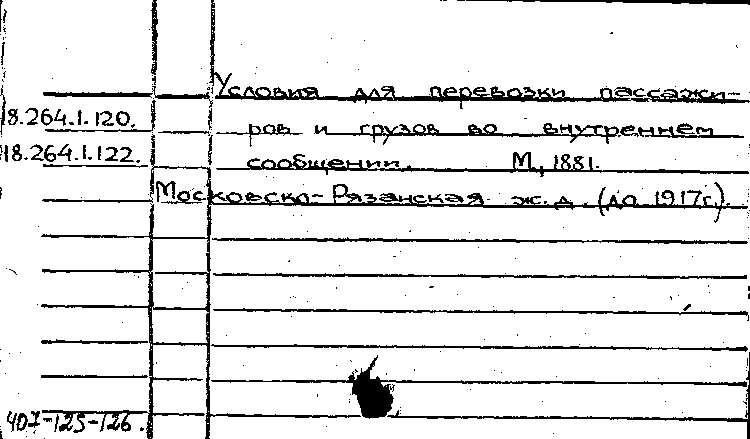 Условия для перевозки пассажи-
18.264.1.120. ров и грузов во внутреннем
18.264.1.122. сообщении. М., 1881.
Московско-Рязанская ж.д. (до 1917г.).
407-125-126.